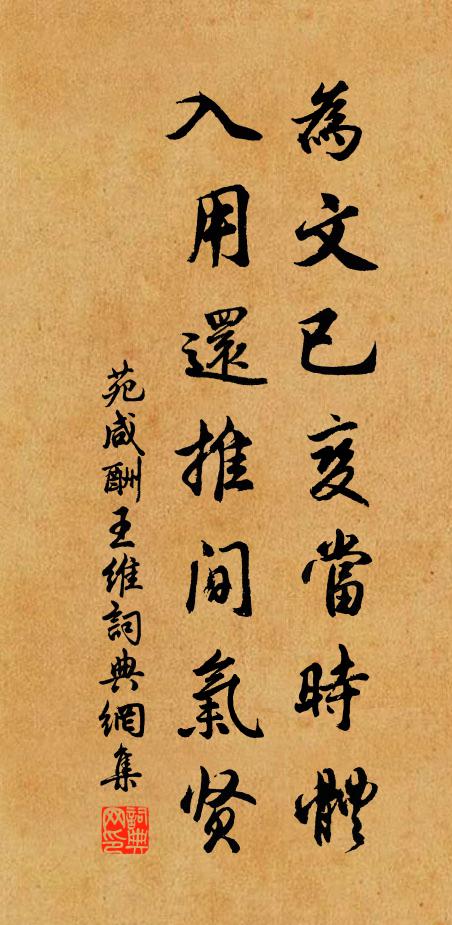 為文已变當時體
入用還推間氣贤
苑咸酬王維詞典網集
詞典网印